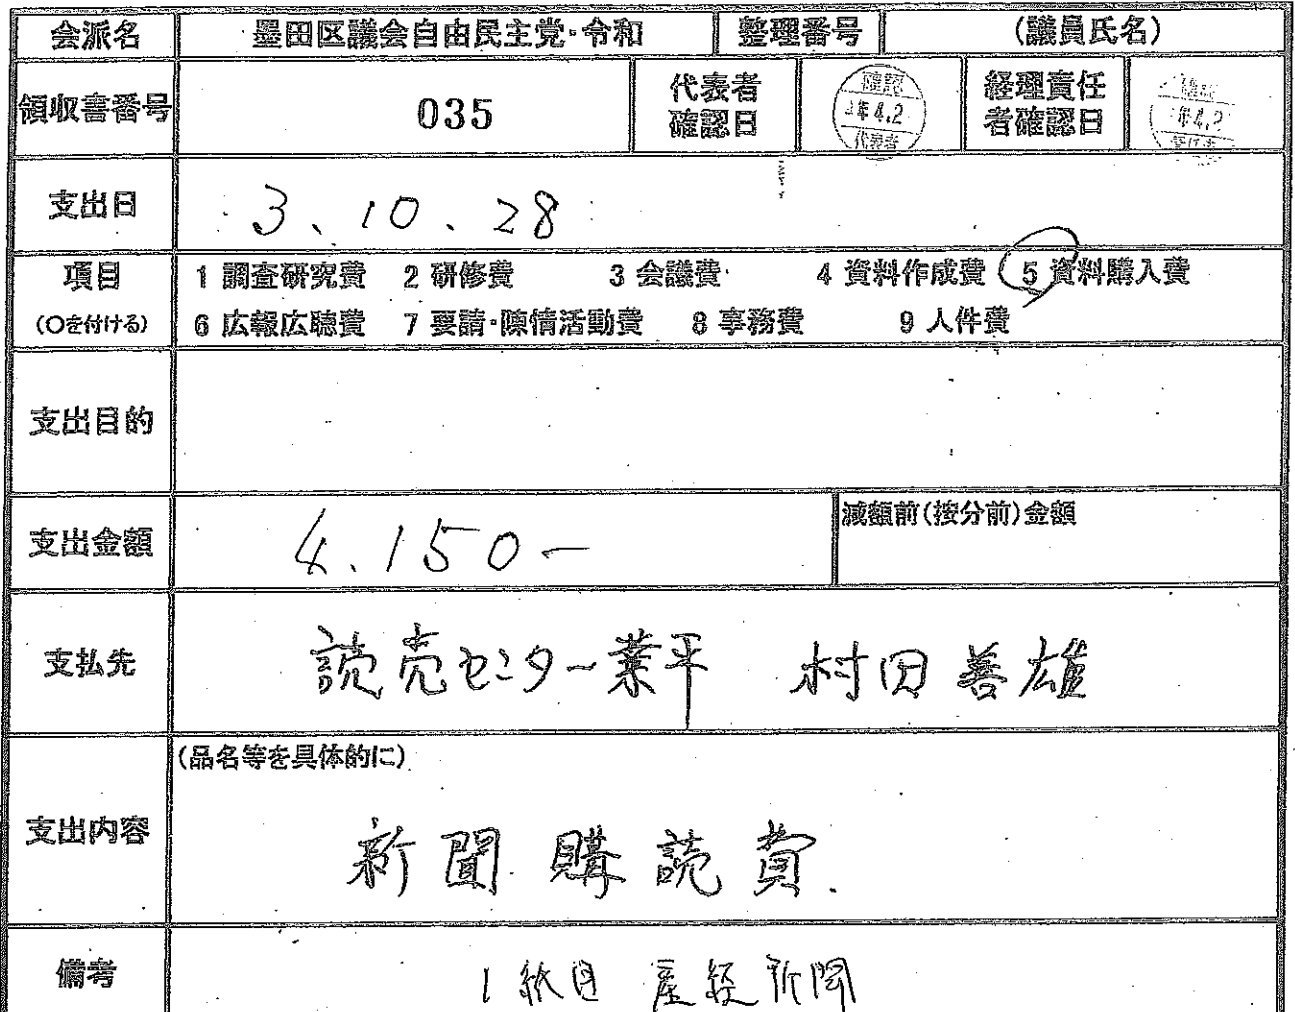 会派名 墨田区議会自由民主党・令和 整理番号 (議員氏名)
領収書番号 035 代表者確認日 確認 年4.2 代表者 経理責任者確認日 年4.2
支出日 3.10.28
項目 1 調査研究費 2 研修費 3 会議費 4 資料作成費 5 資料購入費
(○を付ける) 6 広報広聴費 7 要請・陳情活動費 8 事務費 9 人件費
支出目的
支出金額 4.150- 減額前(按分前)金額
支払先 読売センター業平 村田善雄
支出内容 (品名等を具体的に)
新聞購読費.
備考 1紙目 産経新聞